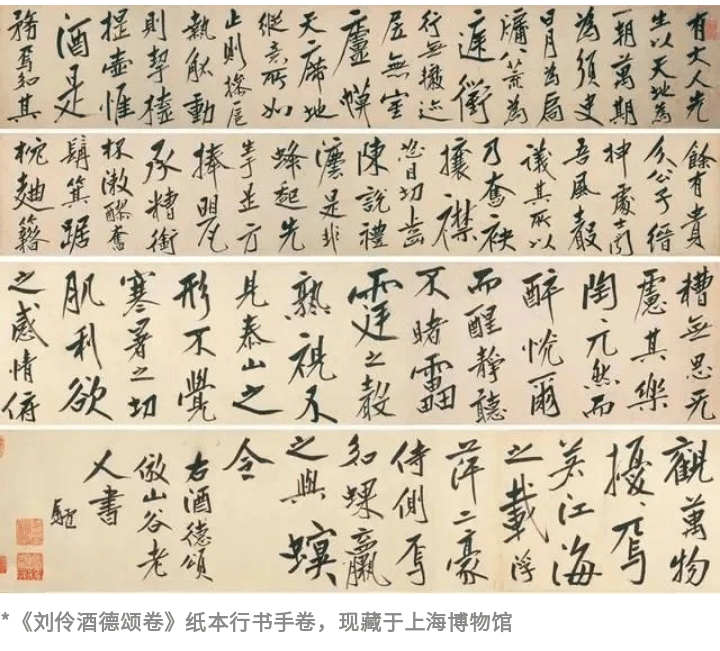 有大人先
生以天地為
一朝萬期
為須臾
日月為扃
牖八荒為
庭衢
行無轍迹
居無室
廬幙
天席地
縱意所如
止則操卮
執觚動
則挈榼
提壺惟
酒是
務焉知其
餘有貴
介公子縉
紳處士聞
吾風聲
議其所以
乃奮袂
攘襟
怒目切齒
陳說禮
灋是非
蜂起先
生於是方
捧罌
承糟銜
杯漱醪奮
髯箕踞
枕麴籍
糟無思无
慮其樂
陶兀然而
醉恍爾
而醒靜聽
不睹雷
霆之聲
熟視不
見泰山之
形不覺
寒暑之切
肌利欲
之感情俯
觀萬物
擾〻焉
若江海
之載浮
萍二豪
侍側焉
如蜾蠃
之與螟
令
右酒德頌
倣山谷老
人書
*《刘伶酒德颂卷》纸本行书手卷，现藏于上海博物馆